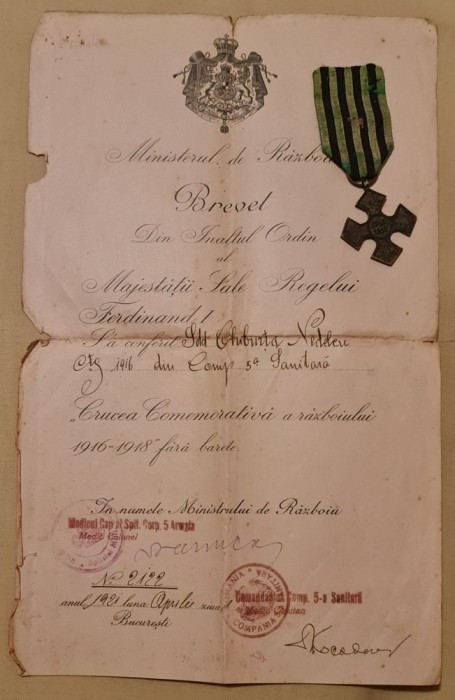 Ministerul de Războiu
Brevet
Din Inaltul Ordin
al
Majestății Sale Regelui
Ferdinand I
S'a conferit Sdt
Ctg 1916 din Comp 5ª Sanitară
„Crucea Comemorativă a războiului
1916-1918" fără barete.
In numele Ministrului de Războiu
Medicul Cap al Spit. Corp. 5 Armata
Medic Colonel
No 2122
anul 1921 luna Aprilie ziua
București
Comandantul Comp. 5-a Sanitară
Medic
ROMANIA
COMPANIA
SANITARA